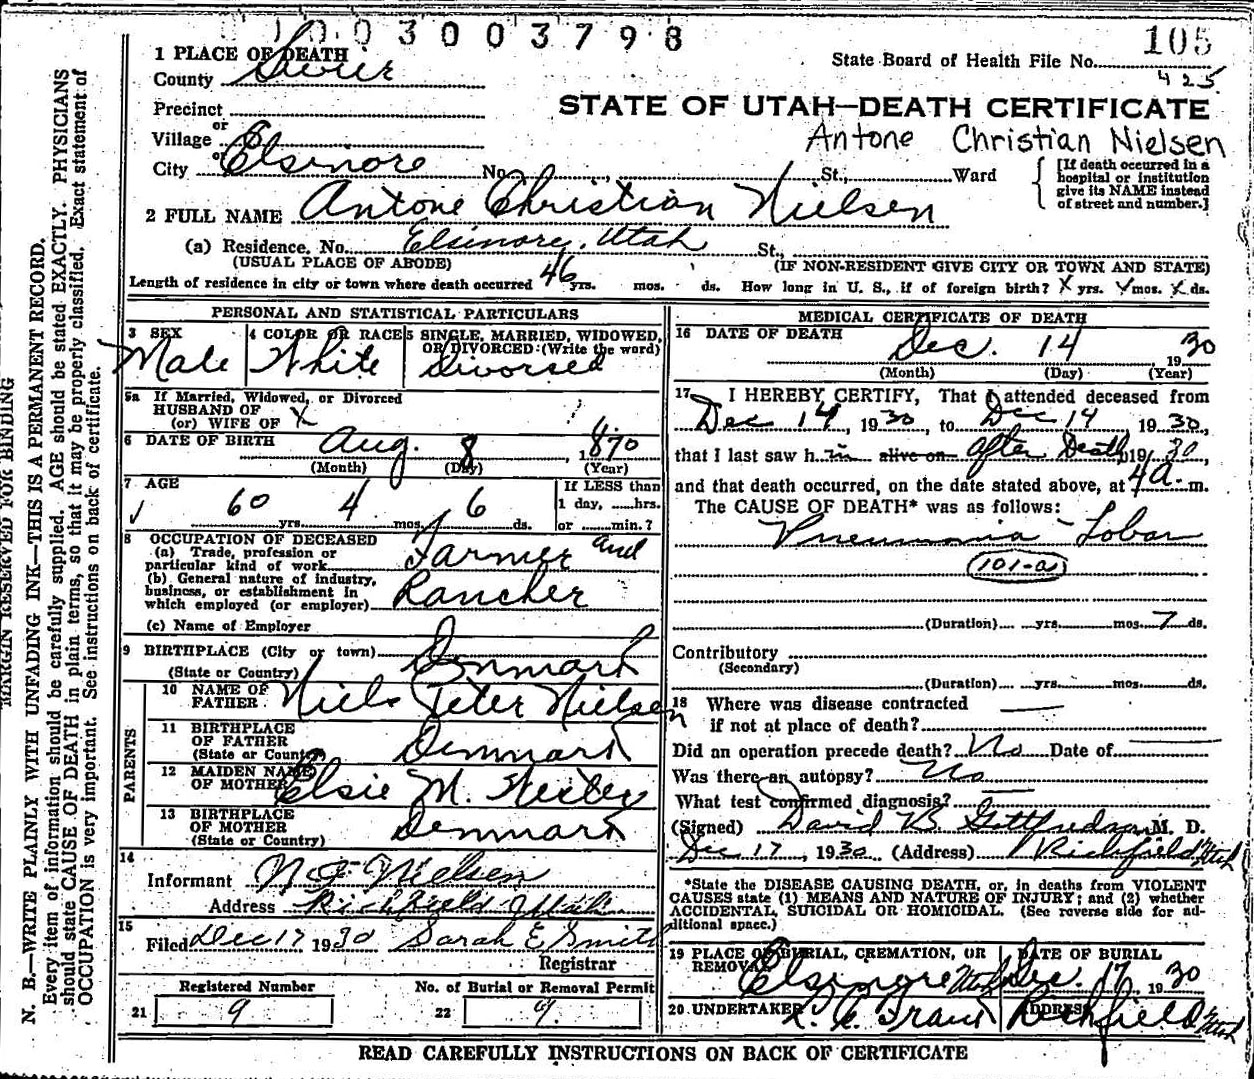 1003003798
105
State Board of Health File No.
425
1 PLACE OF DEATH
County Sevier
STATE OF UTAH—DEATH CERTIFICATE
Precinct
or
Village
Antone Christian Nielsen
or
City Elsinore No. St., Ward
[If death occurred in a
hospital or institution
give its NAME instead
of street and number.]
2 FULL NAME Antone Christian Nielsen
(a) Residence. No. Elsinore, Utah St.,
(USUAL PLACE OF ABODE) (IF NON-RESIDENT GIVE CITY OR TOWN AND STATE)
Length of residence in city or town where death occurred 46 yrs. mos. ds. How long in U. S., if of foreign birth? X yrs. X mos. X ds.
PERSONAL AND STATISTICAL PARTICULARS
3 SEX
Male
4 COLOR OR RACE
White
5 SINGLE, MARRIED, WIDOWED,
OR DIVORCED (Write the word)
Divorsed
5a If Married, Widowed, or Divorced
HUSBAND OF
(or) WIFE OF X
6 DATE OF BIRTH Aug. 8, 1870
(Month) (Day) (Year)
7 AGE
60 yrs. 4 mos. 6 ds.
If LESS than
1 day, hrs.
or min.?
8 OCCUPATION OF DECEASED
(a) Trade, profession or
particular kind of work Farmer and
(b) General nature of industry,
business, or establishment in
which employed (or employer) Rancher
(c) Name of Employer
9 BIRTHPLACE (City or town)
(State or Country) Denmark
PARENTS
10 NAME OF
FATHER Niels Peter Nielsen
11 BIRTHPLACE
OF FATHER
(State or Country) Denmark
12 MAIDEN NAME
OF MOTHER Elsie M.
13 BIRTHPLACE
OF MOTHER
(State or Country) Denmark
14
Informant Nielsen
Address Richfield Utah
15
Filed Dec 17 1930 Sarah E Smith
Registrar
Registered Number
21 9
No. of Burial or Removal Permit
22 9
MEDICAL CERTIFICATE OF DEATH
16 DATE OF DEATH
Dec. 14 1930
(Month) (Day) (Year)
17 I HEREBY CERTIFY, That I attended deceased from
Dec 14, 1930, to Dec 14 1930,
that I last saw h im alive on after Death, 1930,
and that death occurred, on the date stated above, at 4 A. m.
The CAUSE OF DEATH* was as follows:
Pneumonia Lobar
101-a
(Duration) yrs. mos. 7 ds.
Contributory
(Secondary)
(Duration) yrs. mos. ds.
18 Where was disease contracted
if not at place of death?
Did an operation precede death? No Date of
Was there an autopsy? No
What test confirmed diagnosis?
(Signed) David B. Gottfredson M. D.
Dec 17, 1930 (Address) Richfield Utah
*State the DISEASE CAUSING DEATH, or, in deaths from VIOLENT
CAUSES state (1) MEANS AND NATURE OF INJURY; and (2) whether
ACCIDENTAL, SUICIDAL OR HOMICIDAL. (See reverse side for ad-
ditional space.)
19 PLACE OF BURIAL, CREMATION, OR
REMOVAL
Elsinore Utah
DATE OF BURIAL
Dec. 17 1930
20 UNDERTAKER
ADDRESS
Richfield Utah
READ CAREFULLY INSTRUCTIONS ON BACK OF CERTIFICATE
MARGIN RESERVED FOR BINDING
N. B.—WRITE PLAINLY WITH UNFADING INK—THIS IS A PERMANENT RECORD.
Every item of information should be carefully supplied. AGE should be stated EXACTLY. PHYSICIANS
should state CAUSE OF DEATH in plain terms, so that it may be properly classified. Exact statement of
OCCUPATION is very important. See instructions on back of certificate.